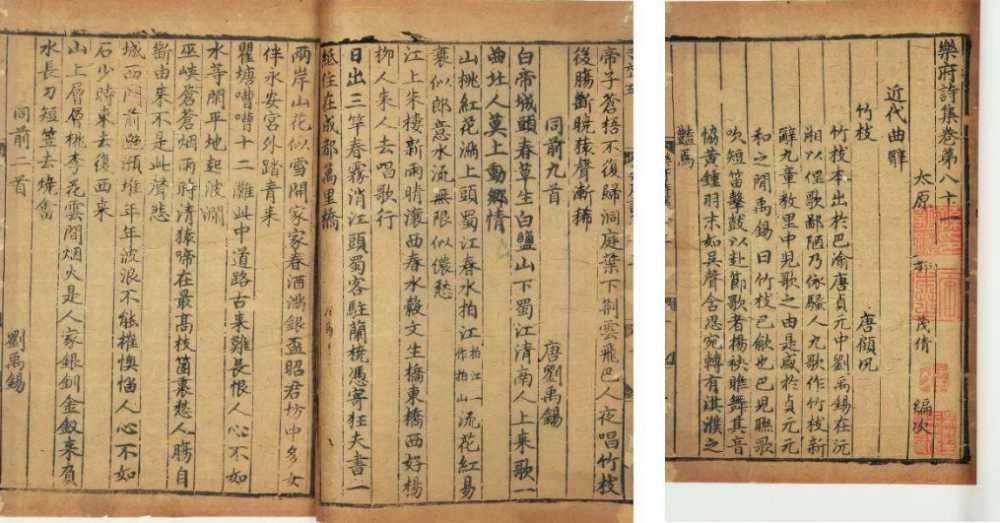 樂府詩集卷第八十一
太原 郭 茂倩 編次
近代曲辭
竹枝 唐顧況
竹枝本出於巴渝唐貞元中劉禹錫在沅
湘以俚歌鄙陋乃依騷人九歌作竹枝新
辭九章教里中兒歌之由是盛於貞元元
和之閒禹錫曰竹枝巴歈也巴兒聯歌
吹短笛擊鼓以赴節歌者揚袂睢舞其音
協黃鍾羽末如吳聲含思宛轉有淇濮之
豔焉
帝子蒼梧不復歸洞庭葉下荆雲飛巴人夜唱竹枝
後腸斷曉猿聲漸稀
同前九首 唐劉禹錫
白帝城頭春草生白鹽山下蜀江清南人上來歌一
曲北人莫上動鄉情
山桃紅花滿上頭蜀江春水拍江拍江一作拍山流花紅易
衰似郎意水流無限似儂愁
江上朱樓新雨晴瀼西春水縠文生橋東橋西好楊
柳人來人去唱歌行
日出三竿春霧消江頭蜀客駐蘭橈憑寄狂夫書一
紙住在成都萬里橋
兩岸山花似雪開家家春酒滿銀盃昭君坊中多女
伴永安宮外踏青來
瞿塘嘈嘈十二灘此中道路古來難長恨人心不如
水等閒平地起波瀾
巫峽蒼蒼烟雨時清猿啼在最高枝箇裏愁人腸自
斷由來不是此聲悲
城西門前灔澦堆年年波浪不能摧懊惱人心不如
石少時東去復西來
山上層層桃李花雲間烟火是人家銀釧金釵來負
水長刀短笠去燒畬
同前二首 劉禹錫